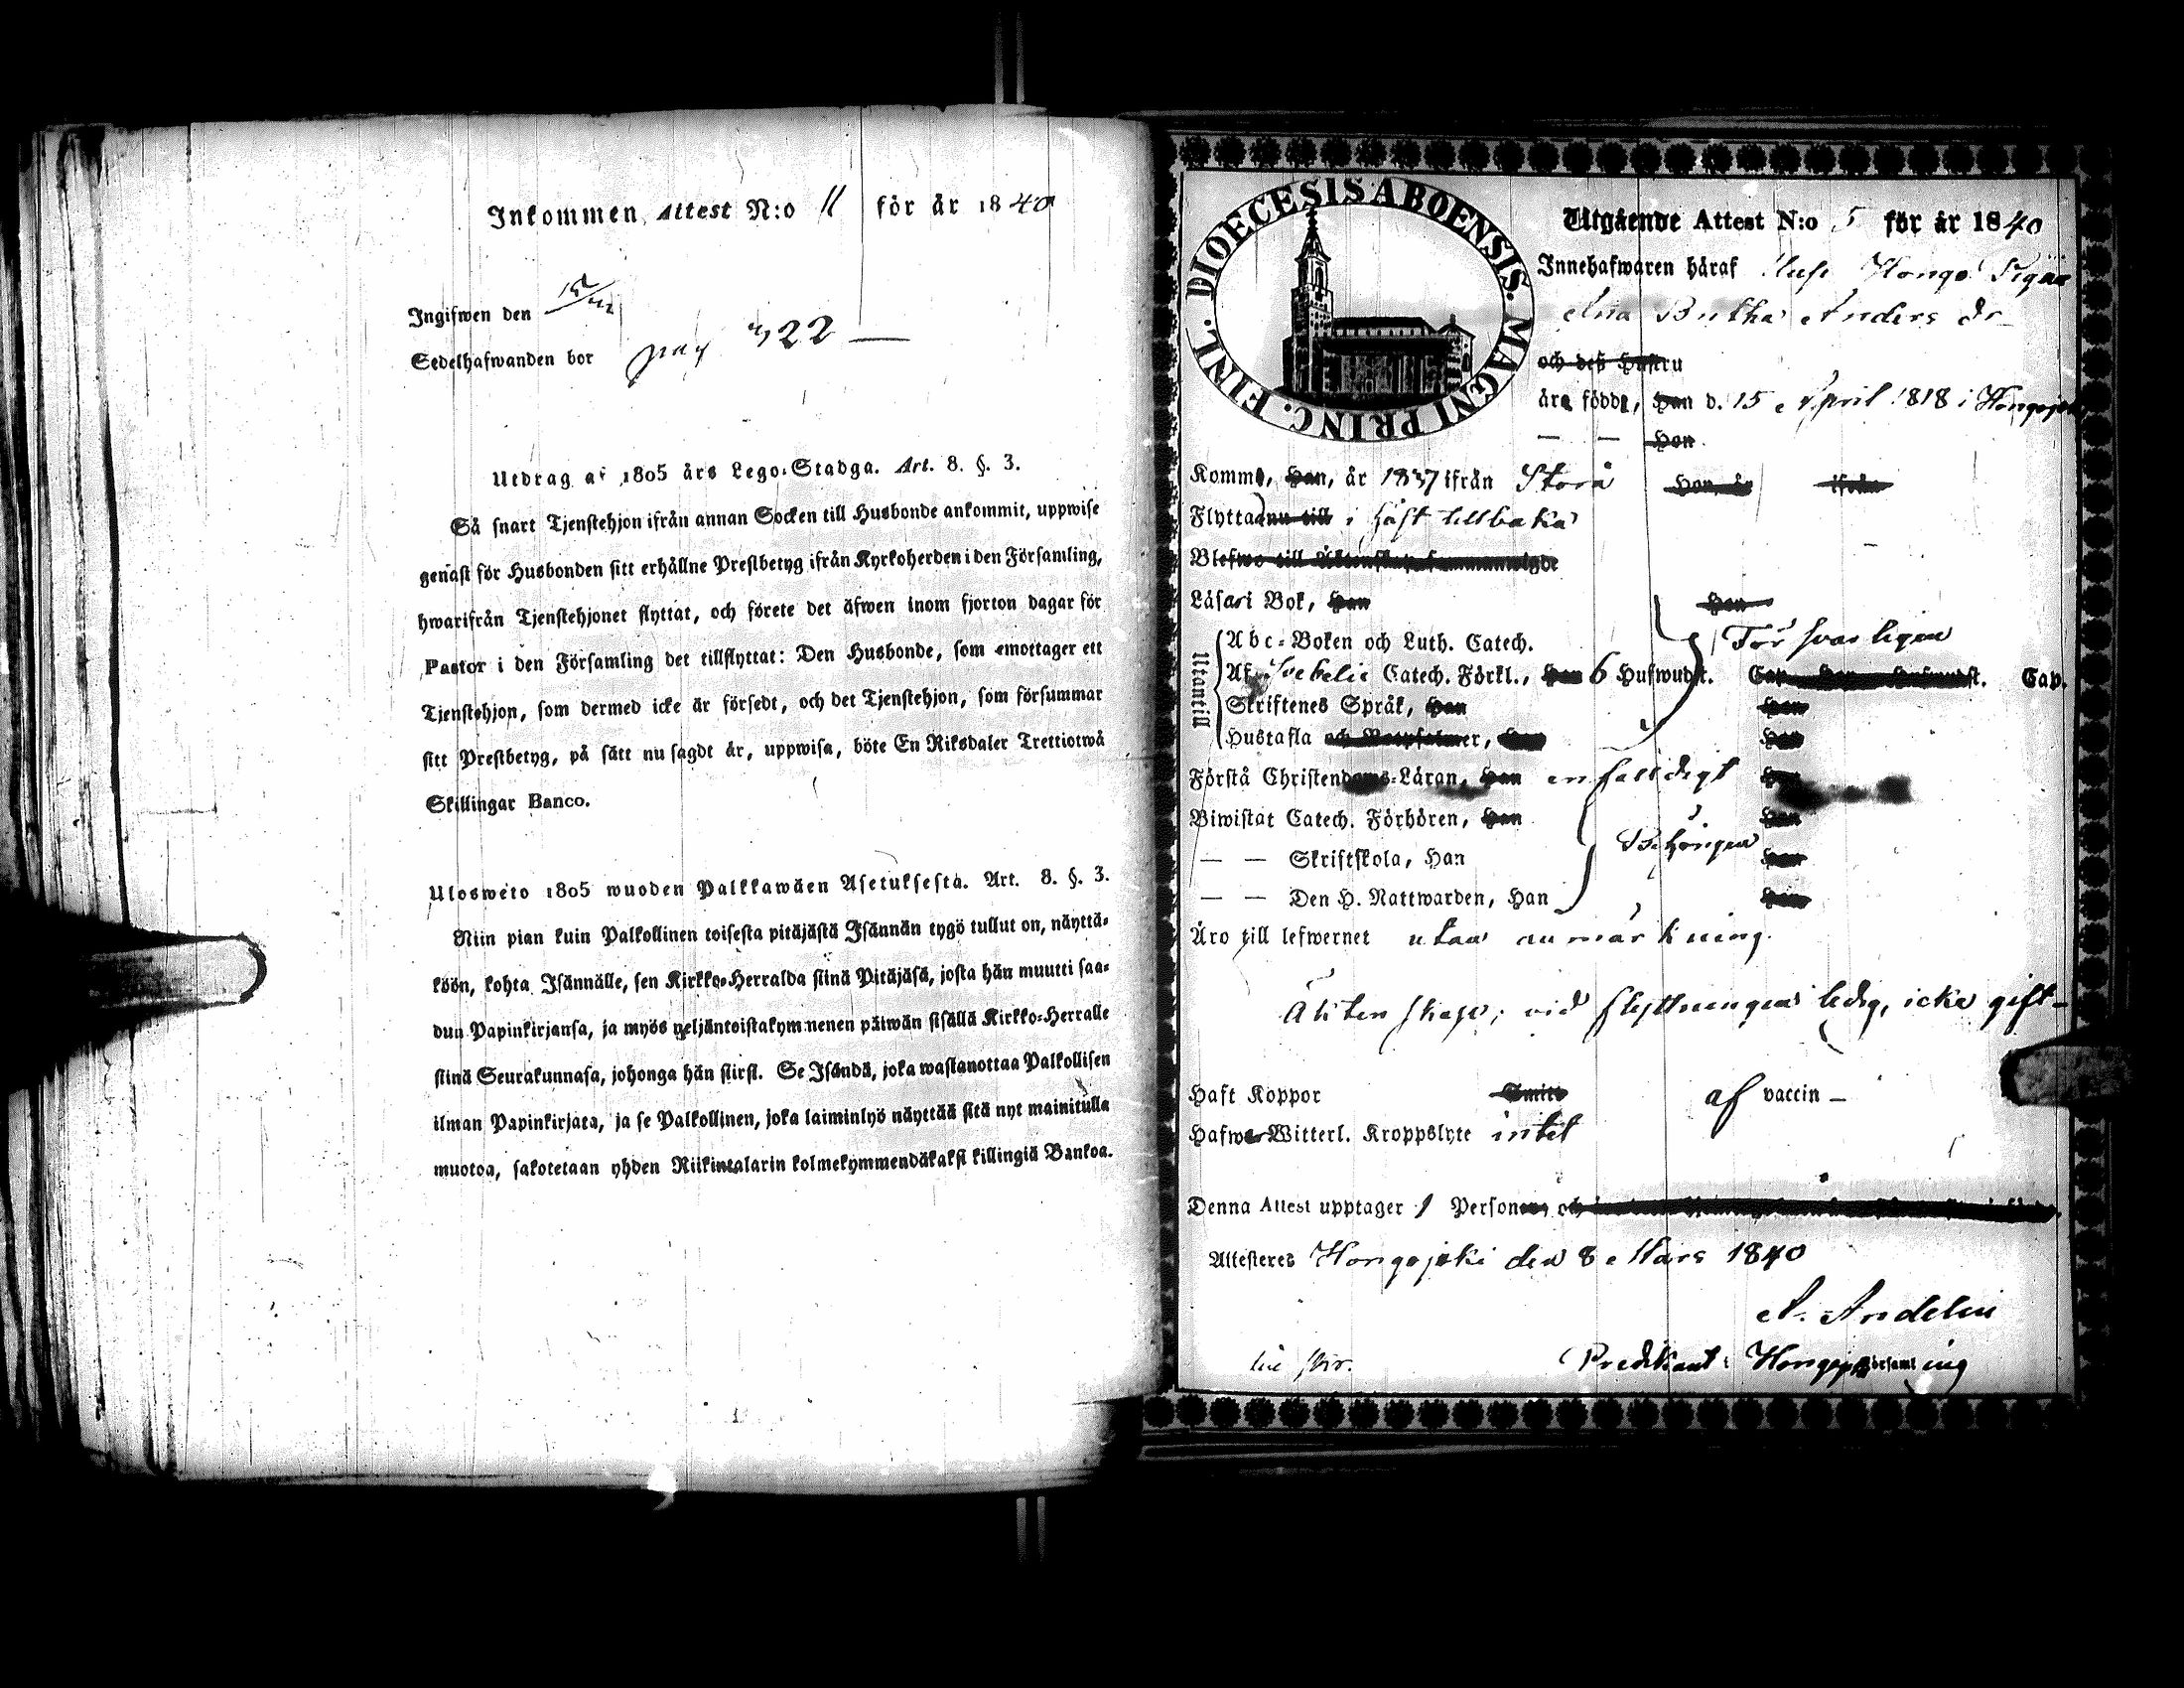 Inkommen Attest N:o 11 för år 1840
Ingifwen den 15/12
Sedelhafwanden bor pag 322 —
Utdrag af 1805 års Lego-Stadga. Art. 8. §. 3.
Så snart Tjenstehjon ifrån annan Socken till Husbonde ankommit, uppwise
genast för Husbonden sitt erhållne Prestbetyg ifrån Kyrkoherden i den Församling,
hwarifrån Tjenstehjonet flyttat, och förete det äfwen inom fjorton dagar för
Pastor i den Församling det tillflyttat: Den Husbonde, som emottager ett
Tjenstehjon, som dermed icke är försedt, och det Tjenstehjon, som försummar
sitt Prestbetyg, på sätt nu sagdt är, uppwisa, böte En Riksdaler Trettiotwå
Skillingar Banco.
Ulosweto 1805 wuoden Palkkawäen Asetuksesta. Art. 8. §. 3.
Niin pian kuin Palkollinen toisesta pitäjästä Isännän tygö tullut on, näyttä-
köön, kohta Isännälle, sen Kirkko-Herralda siinä Pitäjäsä, josta hän muutti saa-
dun Papinkirjansa, ja myös neljäntoistakymmenen päiwän sisällä Kirkko-Herralle
siinä Seurakunnasa, johonga hän siirsi. Se Isändä, joka wastanottaa Palkollisen
ilman Papinkirjata, ja se Palkollinen, joka laiminlyö näyttää sitä nyt mainitulla
muotoa, sakotetaan yhden Riikintalarin kolmekymmendäkaksi killingiä Bankoa.
DIOECESIS ABOENSIS. MAGNI PRINC. FINL.
Utgående Attest N:o 5 för år 1840
Innehafwaren häraf Hongo Pigan
Anders dr
och deß Hustru
äro födde, Han d. 15 April 1818 i
— — Hon
Kommo, Han, år 1837 ifrån Storå Hon, år ifrån
Flytta nu till i höst tillbaka
Blefwo till Äktenskap sammanwigde
Läsa i Bok, Han Hon
Utantill
Abc-Boken och Luth. Catech. Försvarligen
Af Svebelii Catech. Förkl., Han 6 Hufwudst. Cap. Hon Hufwudst. Cap.
Skriftenes Språk, Han Hon
Hustafla och Botpsalmer, Han Hon
Förstå Christendoms-Läran, Han enfalldigt Hon
Biwistat Catech. Förhören, Han Hon
— — Skriftskola, Han Behörigen Hon
— — Den H. Nattwarden, Han Hon
Äro till lefwernet utan anmärkning.
Äktenskap, vid flyttningen ledig, icke gift —
Haft Koppor Smitt af vaccin —
Hafwa Witterl. Kroppslyte intet
Denna Attest upptager 1 Personer, och
Attesteres Hongojoki den 8 Mars 1840
A. Andelin
Predikant i Hongojoki församling